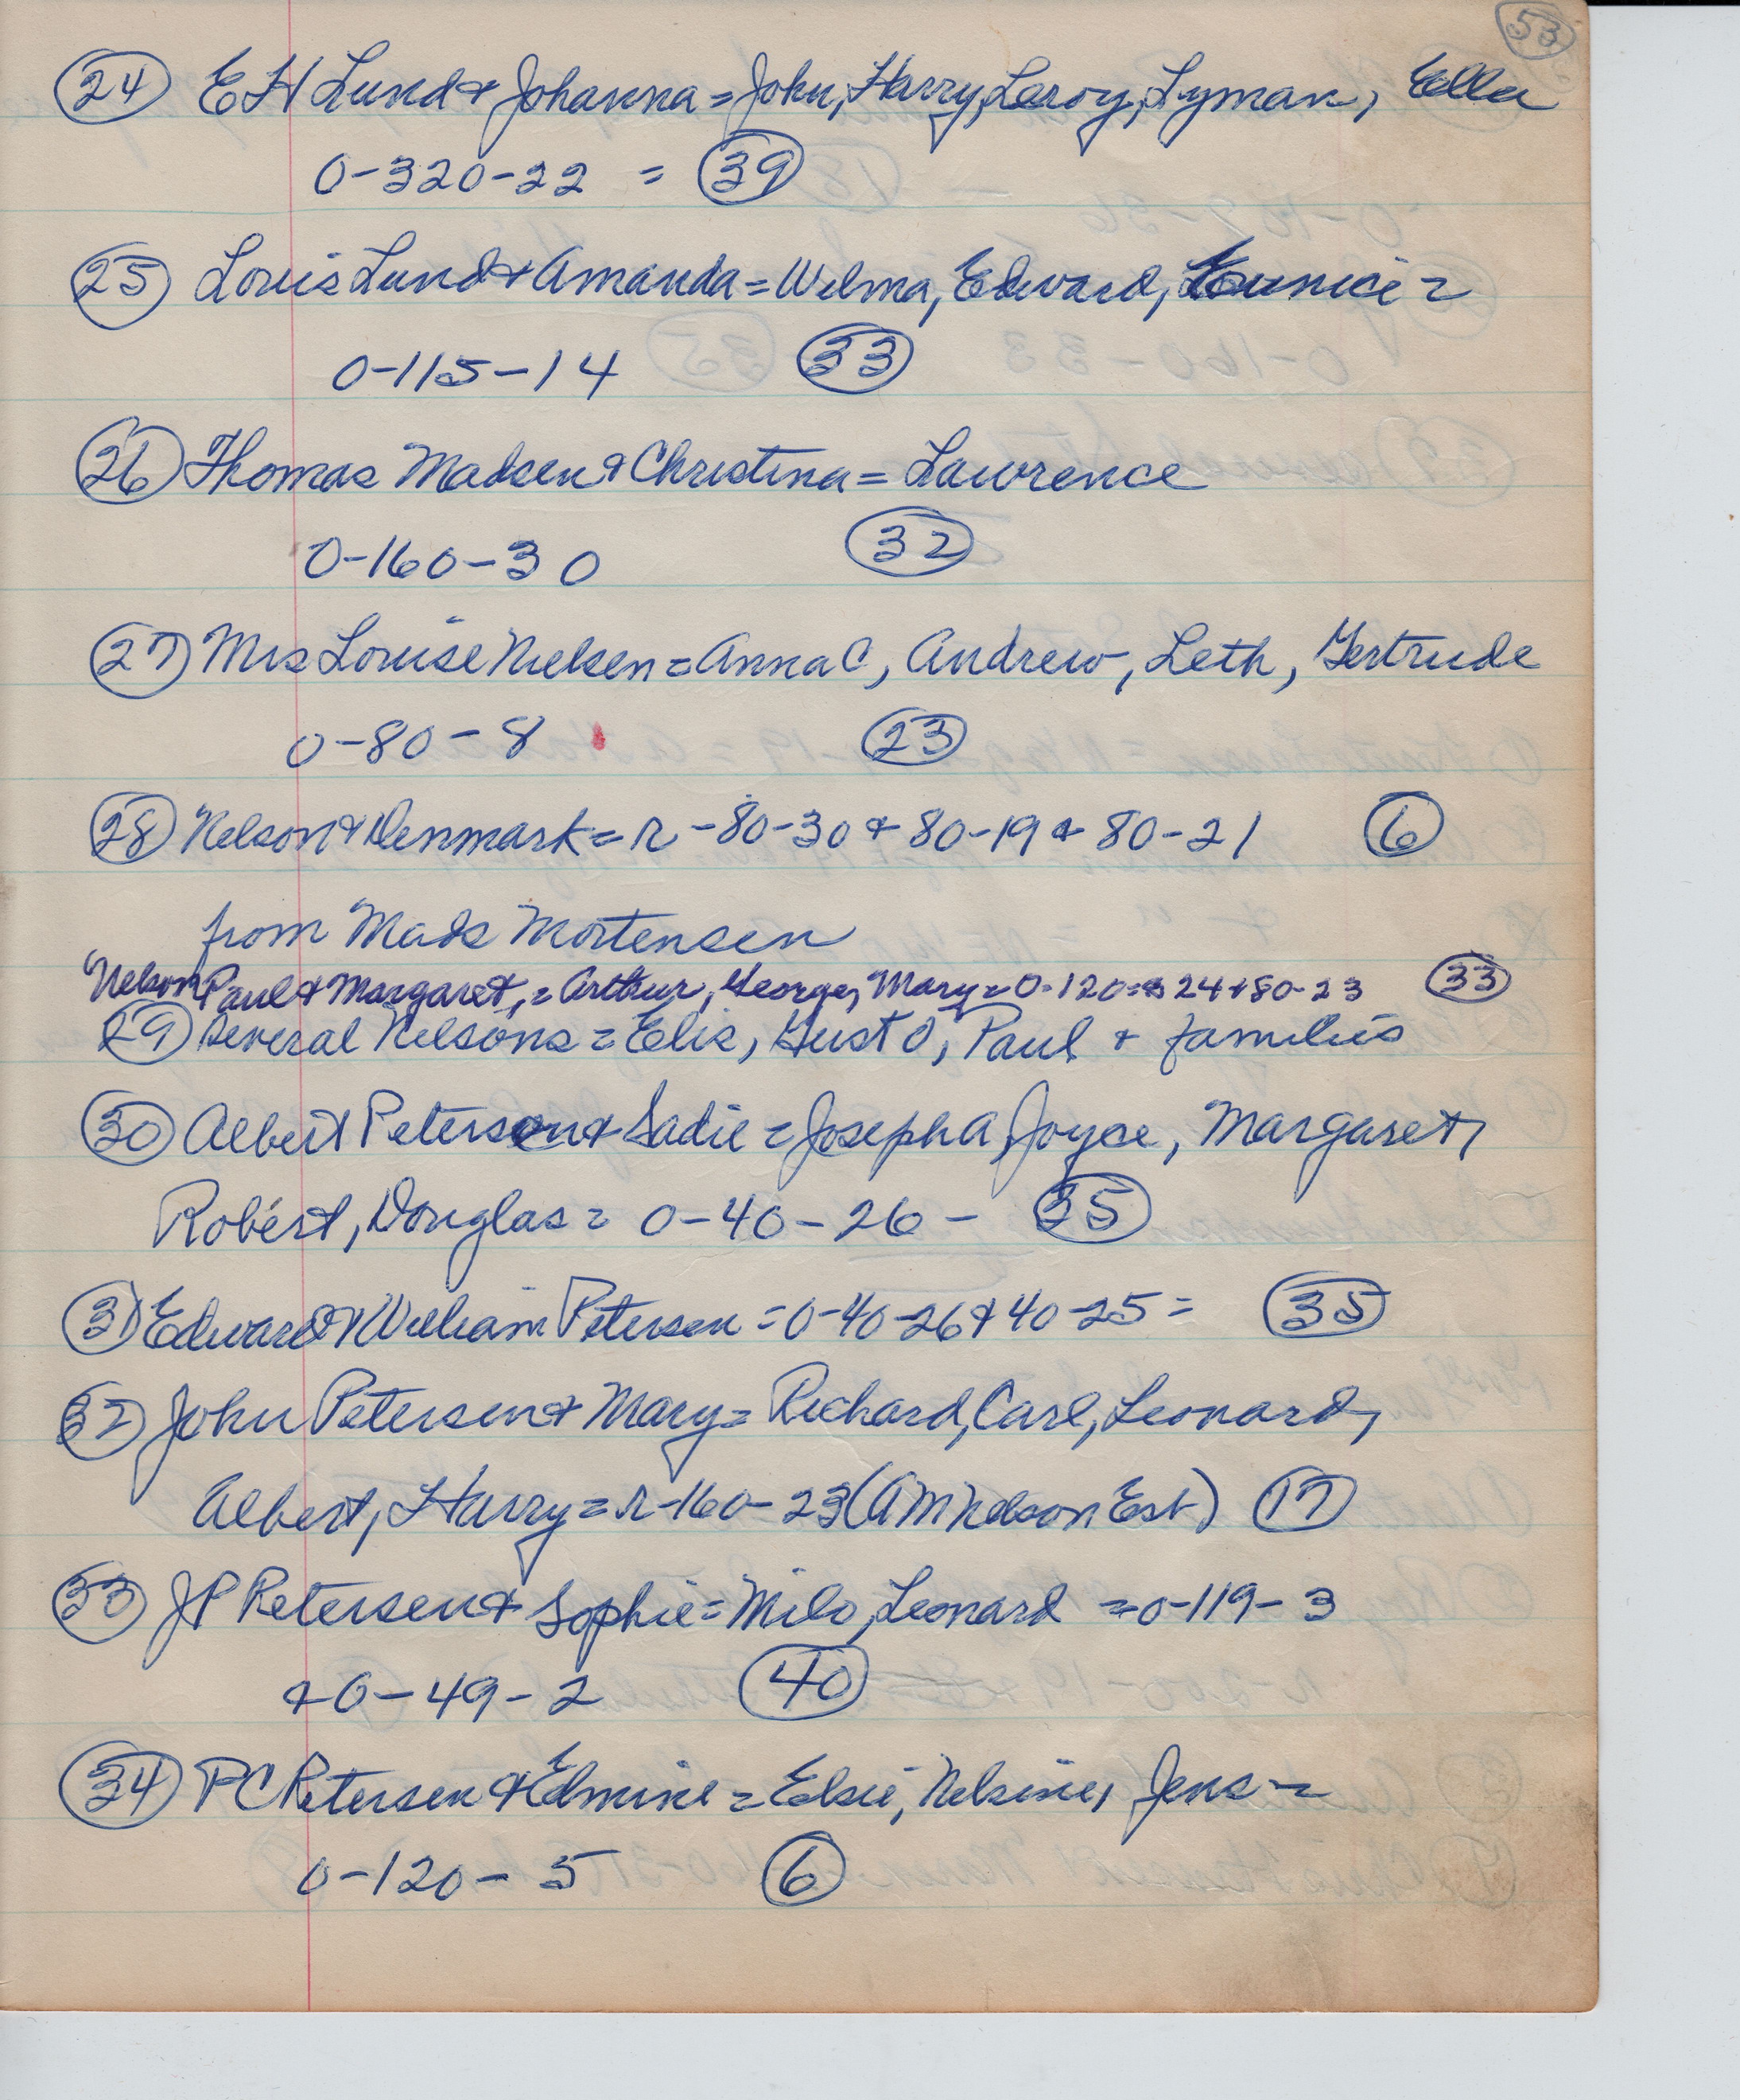 53
24 EH Lund & Johanna = John, Harry, Leroy, Lyman, Ella
0-320-22 = 39
25 Louis Lund & Amanda = Wilma, Edward, Eunice =
0-115-14 33
26 Thomas Madsen & Christina = Lawrence
0-160-30 32
27 Mrs Louise Nielsen = Anna C, Andrew, Leth, Gertrude
0-80-8 23
28 Nelson & Denmark = r -80-30 & 80-19 & 80-21 6
from Mads Mortensen
Nelson Paul & Margaret, = Arthur, George, Mary = 0-120= 24 & 80-23 33
29 several Nelsons = Elis, Gust O, Paul & families
30 Albert Petersen & Sadie = Joseph A, Joyce, Margaret,
Robert, Douglas = 0-40-26 - 35
31 Edward & William Petersen = 0-40-26 & 40-25 = 35
32 John Petersen & Mary = Richard, Carl, Leonard,
Albert, Harry = r-160-23 (AM Nelson Est) 17
33 JP Petersen & Sophie = Milo, Leonard = 0-119-3
& 0-49-2 40
34 PC Petersen & Elmine = Elsie, Nelsine, Jens =
0-120-5 6